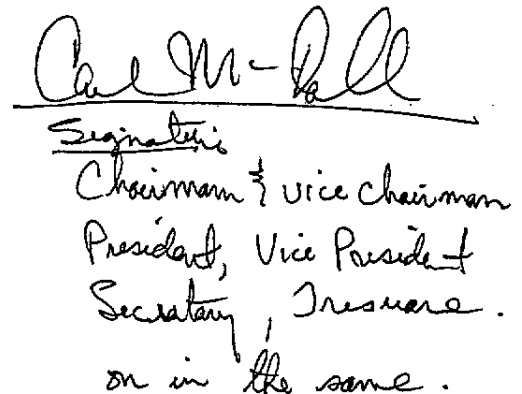 Carl M-Call
Signature
Chairmam & vice chairman
President, Vice President
Secratary, Tresuare.
on in the same.